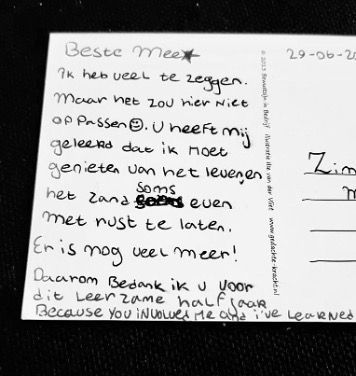 Beste Mee★
29-06-20
Ik heb veel te zeggen.
Maar het zou hier niet
op passen☺. U heeft mij
geleerd dat ik moet
genieten van het leven en
soms
het zand even
met rust te laten.
Er is nog veel meer!
Daarom Bedank ik u voor
dit leerzame halfjaar
Because you involved me and i've learned
Zim
© 2013 Bewustzijn in Bedrijf Illustratie van der Vliet www.gedachte-kracht.nl